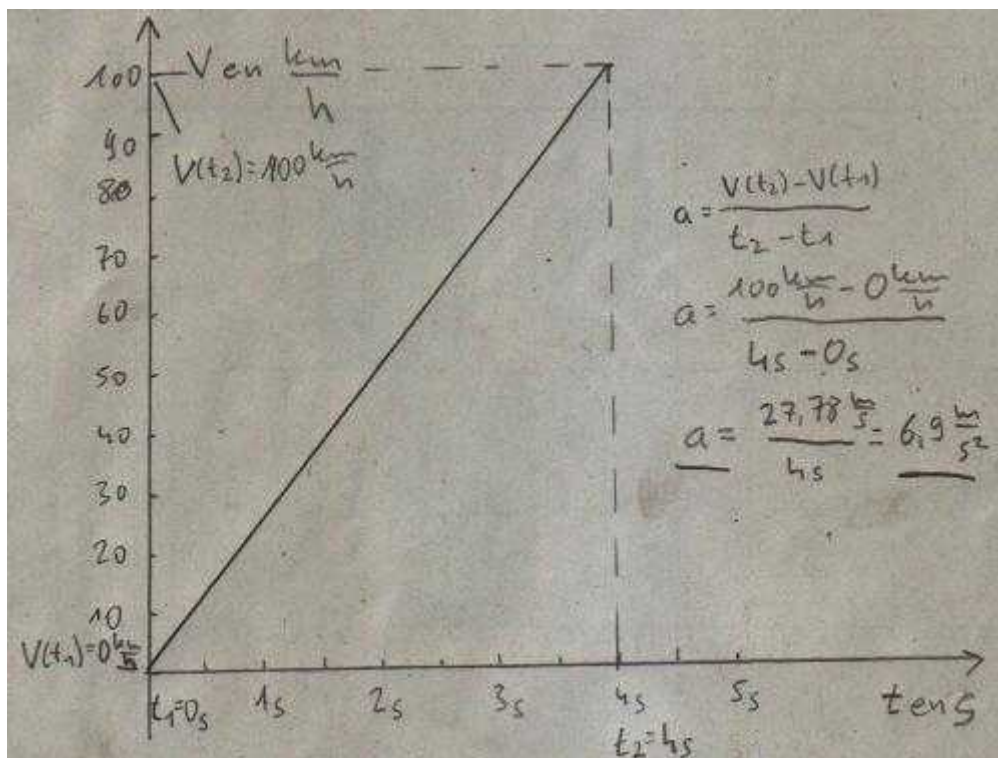 100 V en km/h
90
V(t₂)=100 km/h
80
70
60
50
40
30
20
10
V(t₁)=0 km/h
t₁=0s 1s 2s 3s 4s 5s t en s
t₂=4s
a = (V(t₂)-V(t₁))/(t₂-t₁)
a = (100 km/h - 0 km/h)/(4s - 0s)
a = (27,78 m/s)/(4s) = 6,9 m/s²